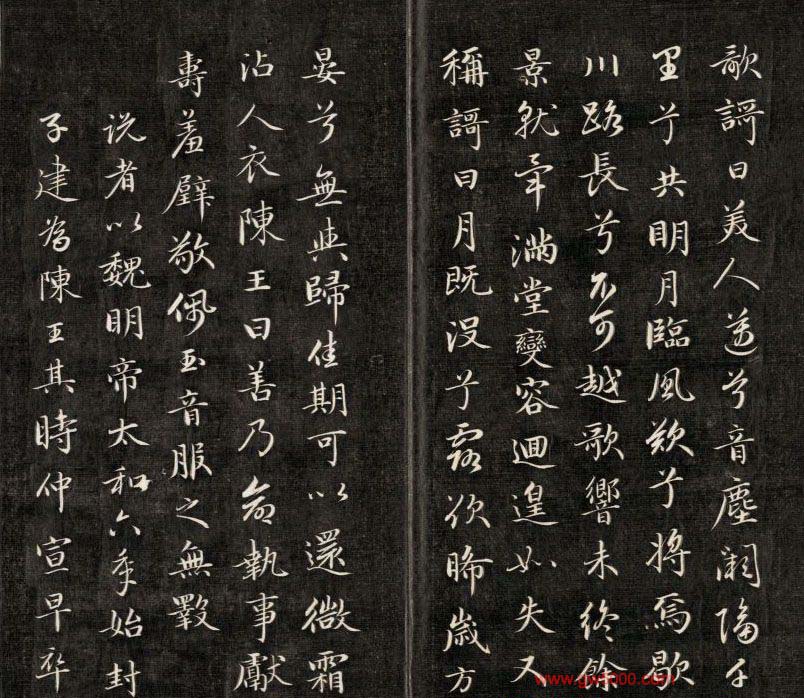 歌謌曰美人邁兮音塵闕隔千
里兮共明月臨風歎兮將焉歇
川路長兮不可越歌響未終餘
景就畢滿堂變容迴遑如失又
稱謌曰月既没兮露欲晞歲方
晏兮無與歸佳期可以還微霜
沾人衣陳王曰善乃命執事獻
壽羞璧敬佩玉音服之無斁
説者以魏明帝太和六年始封
子建為陳王其時仲宣早卒
www.gw5000.com